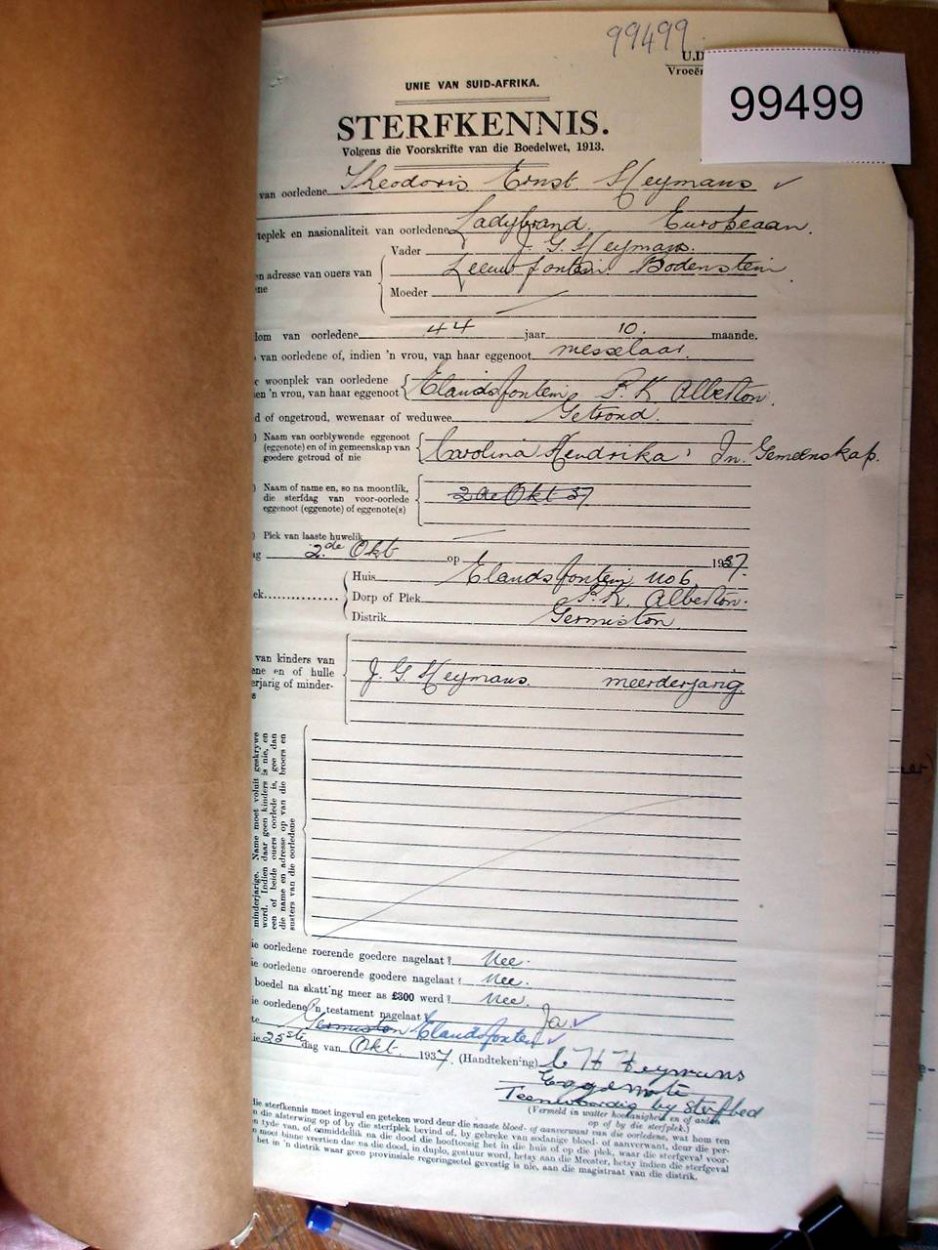 99499
U.D
Vroeër
99499
UNIE VAN SUID-AFRIKA.
STERFKENNIS.
Volgens die Voorskrifte van die Boedelwet, 1913.
van oorledene Theodoris Ernst Heymans
teplek en nasionaliteit van oorledene Ladybrand. Europeaan.
Vader J. G. Heymans.
n adresse van ouers van Leeuwfontein Bodenstein
ene
Moeder
dom van oorledene 44 jaar 10. maande.
van oorledene of, indien 'n vrou, van haar eggenoot messelaar.
woonplek van oorledene
ien 'n vrou, van haar eggenoot Elandsfontein P.K. Alberton.
d of ongetroud, wewenaar of weduwee Getroud.
) Naam van oorblywende eggenoot
(eggenote) en of in gemeenskap van Carolina Hendrika, In Gemeenskap.
goedere getroud of nie
) Naam of name en, so na moontlik,
die sterfdag van voor-oorlede 2de Okt 37
eggenoot (eggenote) of eggenote(s)
) Plek van laaste huwelik
ag 2de Okt op 1937.
Huis Elandsfontein no 6.
ek............. Dorp of Plek P.K. Alberton.
Distrik Germiston
van kinders van
ene en of hulle J. G. Heymans. meerderjarig.
erjarig of minder-
s
minderjarige. Name moet voluit geskrywe
word. Indien daar geen kinders is nie, en
een of beide ouers oorlede is, gee dan
die name en adresse op van die broers en
susters van die oorledene
ie oorledene roerende goedere nagelaat? Nee.
ie oorledene onroerende goedere nagelaat? Nee.
boedel na skatt'ng meer as £300 werd? Nee.
ie oorledene 'n testament nagelaat? Ja
te Germiston Elandsfontein
ie 25ste dag van Okt. 1937. (Handtekening) C H Heymans
Eggenote
Teenwoordig by sterfbed
(Vermeld in watter hoedanigheid en of anders
op of by die sterfplek.)
die sterfkennis moet ingevul en geteken word deur die naaste bloed- of aanverwant van die oorledene, wat hom ten
n die afsterwing op of by die sterfplek bevind of, by gebreke van sodanige bloed- of aanverwant, deur die per-
n tyde van, of onmiddellik na die dood die hooftoesig het in die huis of op die plek, waar die sterfgeval voor-
n moet binne veertien dae na die dood, in duplo, gestuur word, hetsy aan die Meester, hetsy indien die sterfgeval
het in 'n distrik waar geen provinsiale regeringsetel gevestig is nie, aan die magistraat van die distrik.